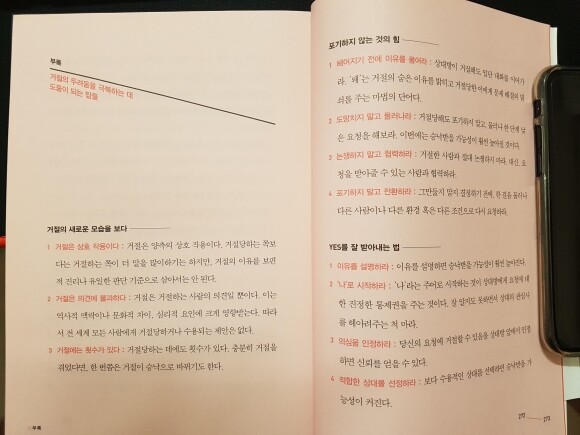 부록
거절의 두려움을 극복하는 데
도움이 되는 팁들
거절의 새로운 모습을 보다
1 거절은 상호 작용이다 : 거절은 양측의 상호 작용이다. 거절당하는 쪽보
다는 거절하는 쪽이 더 말을 많이하기는 하지만, 거절의 이유를 보편
적 진리나 유일한 판단 기준으로 삼아서는 안 된다.
2 거절은 의견에 불과하다 : 거절은 거절하는 사람의 의견일 뿐이다. 이는
역사적 맥락이나 문화적 차이, 심리적 요인에 크게 영향받는다. 따라
서 전 세계 모든 사람에게 거절당하거나 수용되는 제안은 없다.
3 거절에는 횟수가 있다 : 거절당하는 데에도 횟수가 있다. 충분히 거절을
겪었다면, 한 번쯤은 거절이 승낙으로 바뀌기도 한다.
부록
포기하지 않는 것의 힘
1 헤어지기 전에 이유를 물어라 : 상대방이 거절해도 일단 대화를 이어가
라. '왜'는 거절의 숨은 이유를 밝히고 거절당한 이에게 문제 해결의 열
쇠를 주는 마법의 단어다.
2 도망치지 말고 물러나라 : 거절당해도 포기하지 말고, 물러나 한 단계 낮
은 요청을 해보라. 이번에는 승낙받을 가능성이 훨씬 높아질 것이다.
3 논쟁하지 말고 협력하라 : 거절한 사람과 절대 논쟁하지 마라. 대신, 요
청을 받아줄 수 있는 사람과 협력하라.
4 포기하지 말고 전환하라 : 그만둘지 말지 결정하기 전에, 한 걸음 물러나
다른 사람이나 다른 환경 혹은 다른 조건으로 다시 요청하라.
YES를 잘 받아내는 법
1 이유를 설명하라 : 이유를 설명하면 승낙받을 가능성이 훨씬 높아진다.
2 '나'로 시작하라 : '나'라는 주어로 시작하는 것이 상대방에게 요청에 대
한 진정한 통제권을 주는 것이다. 잘 알지도 못하면서 상대의 관심사
를 헤아려주는 척 마라.
3 의심을 인정하라 : 당신의 요청에 거절할 수 있음을 상대방 앞에서 인정
하면 신뢰를 얻을 수 있다.
4 적합한 상대를 선정하라 : 보다 수용적인 상대를 선택하면 승낙받을 가
능성이 커진다.
272 — 273